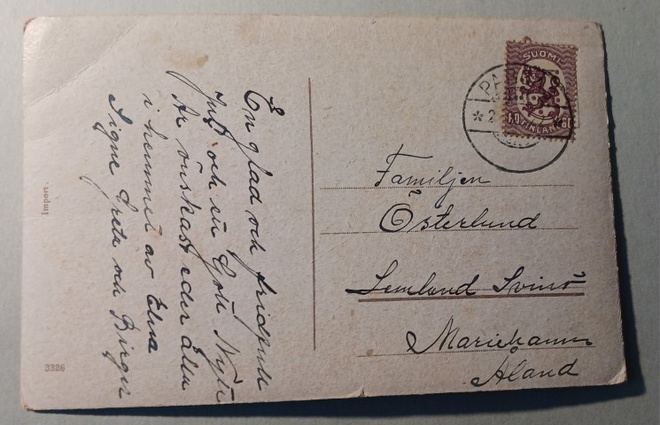 En glad och fridfull
Jul och ett Gott Nytt
År önskas eder Alla
i hemmet av Elna
Signe Greta och Birger
Familjen
Österlund
Lemland Svinö
Mariehamn
Åland
SUOMI
FINLAND
Import.
3326